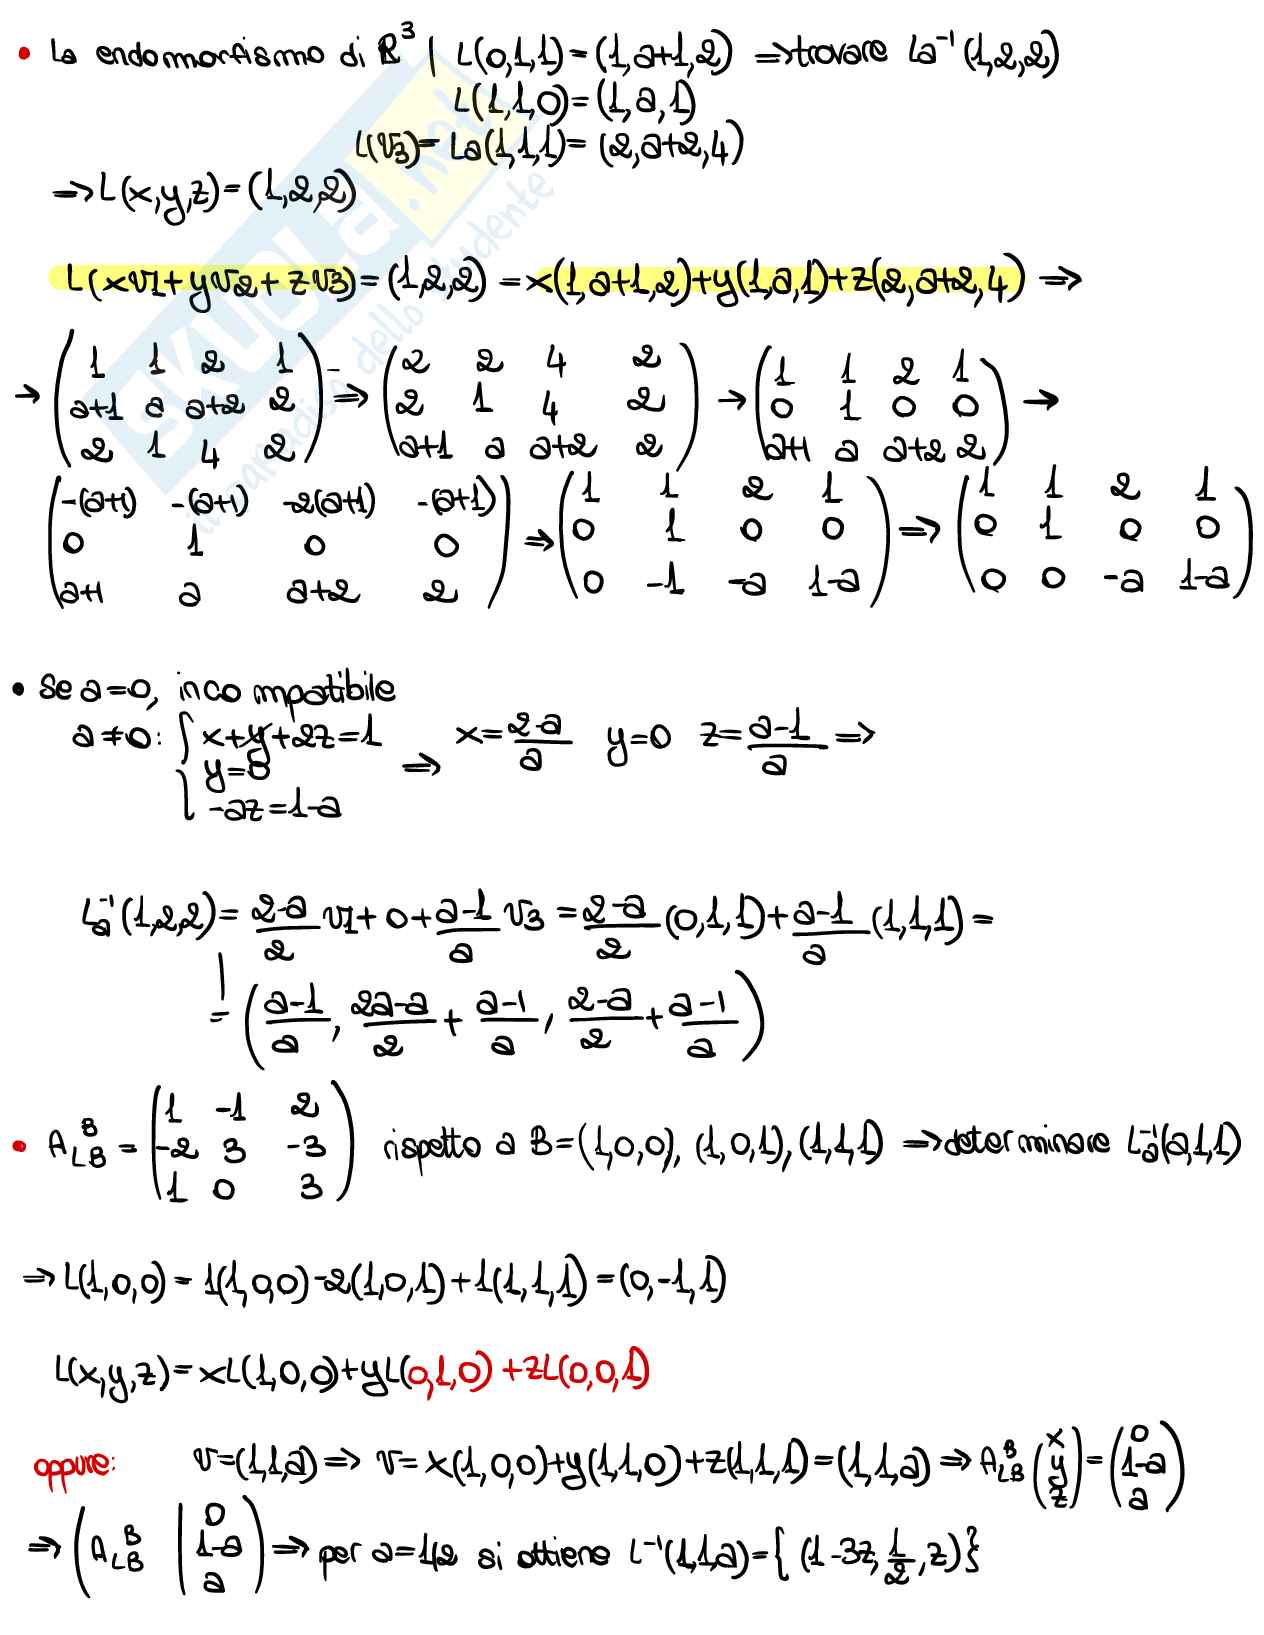 • La endomorfismo di R³ | L(0,1,1)=(1,a+1,2) ⇒ trovare La⁻¹(1,2,2)
L(1,1,0)=(1,a,1)
L(v₃)= La(1,1,1)= (2,a+2,4)
⇒ L(x,y,z)=(1,2,2)
L(xv1+yv2+zv3)=(1,2,2) = x(1,a+1,2)+y(1,a,1)+z(2,a+2,4) ⇒
→ (1 1 2 1 / a+1 a a+2 2 / 2 1 4 2) ⇒ (2 2 4 2 / 2 1 4 2 / a+1 a a+2 2) → (1 1 2 1 / 0 1 0 0 / a+1 a a+2 2) →
(-(a+1) -(a+1) -2(a+1) -(a+1) / 0 1 0 0 / a+1 a a+2 2) ⇒ (1 1 2 1 / 0 1 0 0 / 0 -1 -a 1-a) ⇒ (1 1 2 1 / 0 1 0 0 / 0 0 -a 1-a)
• Se a=0, incompatibile
a≠0: { x+y+2z=1 ⇒ x=2-a/a y=0 z=a-1/a ⇒
y=0
-az=1-a
La⁻¹(1,2,2)= 2-a/2 v1+0+a-1/a v3 = 2-a/2 (0,1,1)+a-1/a (1,1,1) =
= (a-1/a, 2a-a/2 + a-1/a, 2-a/2 + a-1/a)
• A_LB^B = (1 -1 2 / -2 3 -3 / 1 0 3) rispetto a B=(1,0,0), (1,0,1),(1,1,1) ⇒ determinare La⁻¹(a,1,1)
⇒ L(1,0,0) = 1(1,0,0)-2(1,0,1)+1(1,1,1)=(0,-1,1)
L(x,y,z)=xL(1,0,0)+yL(0,1,0)+zL(0,0,1)
oppure: v=(1,1,a) ⇒ v= x(1,0,0)+y(1,1,0)+z(1,1,1)=(1,1,a) ⇒ A_LB^B (x / y / z) = (0 / 1-a / a)
⇒ (A_LB^B | 0 / 1-a / a) ⇒ per a=1/2 si ottiene L⁻¹(1,1,a)={ (1-3z, 1/2, z)}
SKUOLA.net
il paradiso dello studente